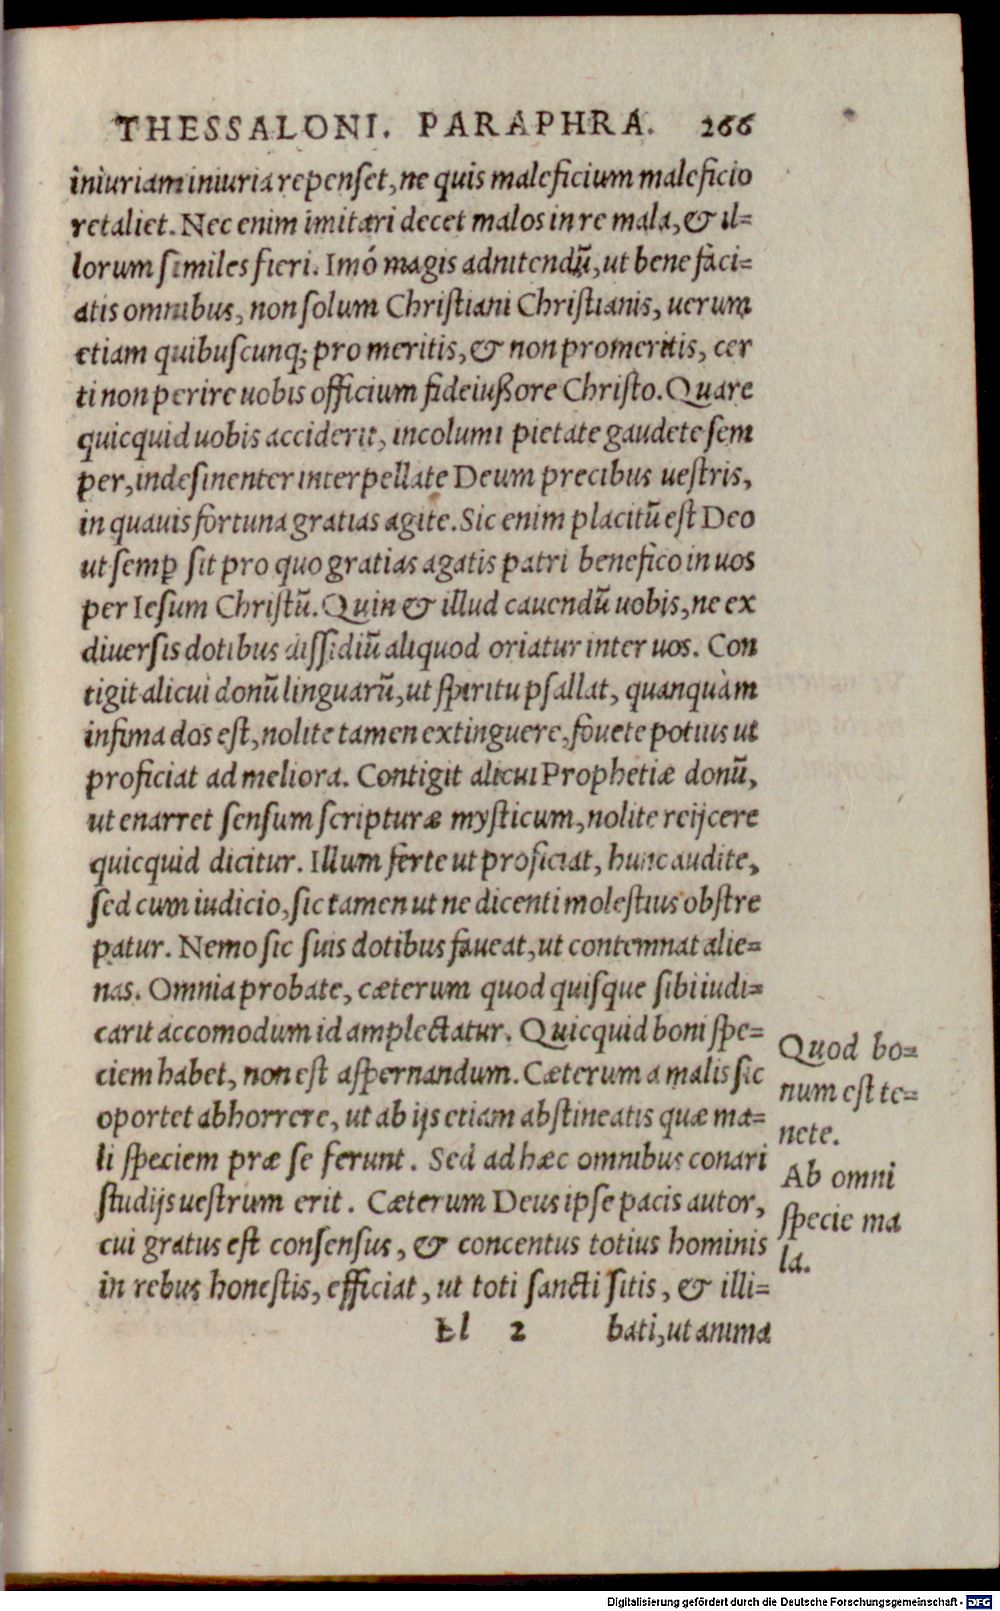 THESSALONI. PARAPHRA. 266
iniuriam iniuria repenset, ne quis maleficium maleficio
retaliet. Nec enim imitari decet malos in re mala, & il=
lorum similes fieri. Imó magis adnitendũ, ut bene faci=
atis omnibus, non solum Christiani Christianis, uerum
etiam quibuscunq; pro meritis, & non promeritis, cer
ti non perire uobis officium fideiußore Christo. Quare
quicquid uobis acciderit, incolumi pietate gaudete sem
per, indesinenter interpellate Deum precibus uestris,
in quauis fortuna gratias agite. Sic enim placitũ est Deo
ut semꝑ sit pro quo gratias agatis patri benefico in uos
per Iesum Christũ. Quin & illud cauendũ uobis, ne ex
diuersis dotibus dissidiũ aliquod oriatur inter uos. Con
tigit alicui donũ linguarũ, ut spiritu psallat, quanquàm
infima dos est, nolite tamen extinguere, fouete potius ut
proficiat ad meliora. Contigit alicui Prophetiæ donũ,
ut enarret sensum scripturæ mysticum, nolite reijcere
quicquid dicitur. Illum ferte ut proficiat, hunc audite,
sed cum iudicio, sic tamen ut ne dicenti molestius obstre
patur. Nemo sic suis dotibus faueat, ut contemnat alie=
nas. Omnia probate, cæterum quod quisque sibi iudi=
carit accomodum id amplectatur. Quicquid boni spe=
ciem habet, non est aspernandum. Cæterum a malis sic
oportet abhorrere, ut ab ijs etiam abstineatis quæ ma=
li speciem præ se ferunt. Sed ad hæc omnibus conari
studijs uestrum erit. Cæterum Deus ipse pacis autor,
cui gratus est consensus, & concentus totius hominis
in rebus honestis, efficiat, ut toti sancti sitis, & illi=
Ll 2 bati, ut anima
Quod bo=
num est te=
nete.
Ab omni
specie ma
la.
Digitalisierung gefördert durch die Deutsche Forschungsgemeinschaft - DFG